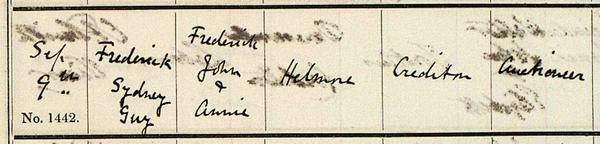 Sep
9th
No. 1442.
Frederick
Sydney
Guy
Frederick
John
&
Annie
Helmore
Crediton
Auctioneer